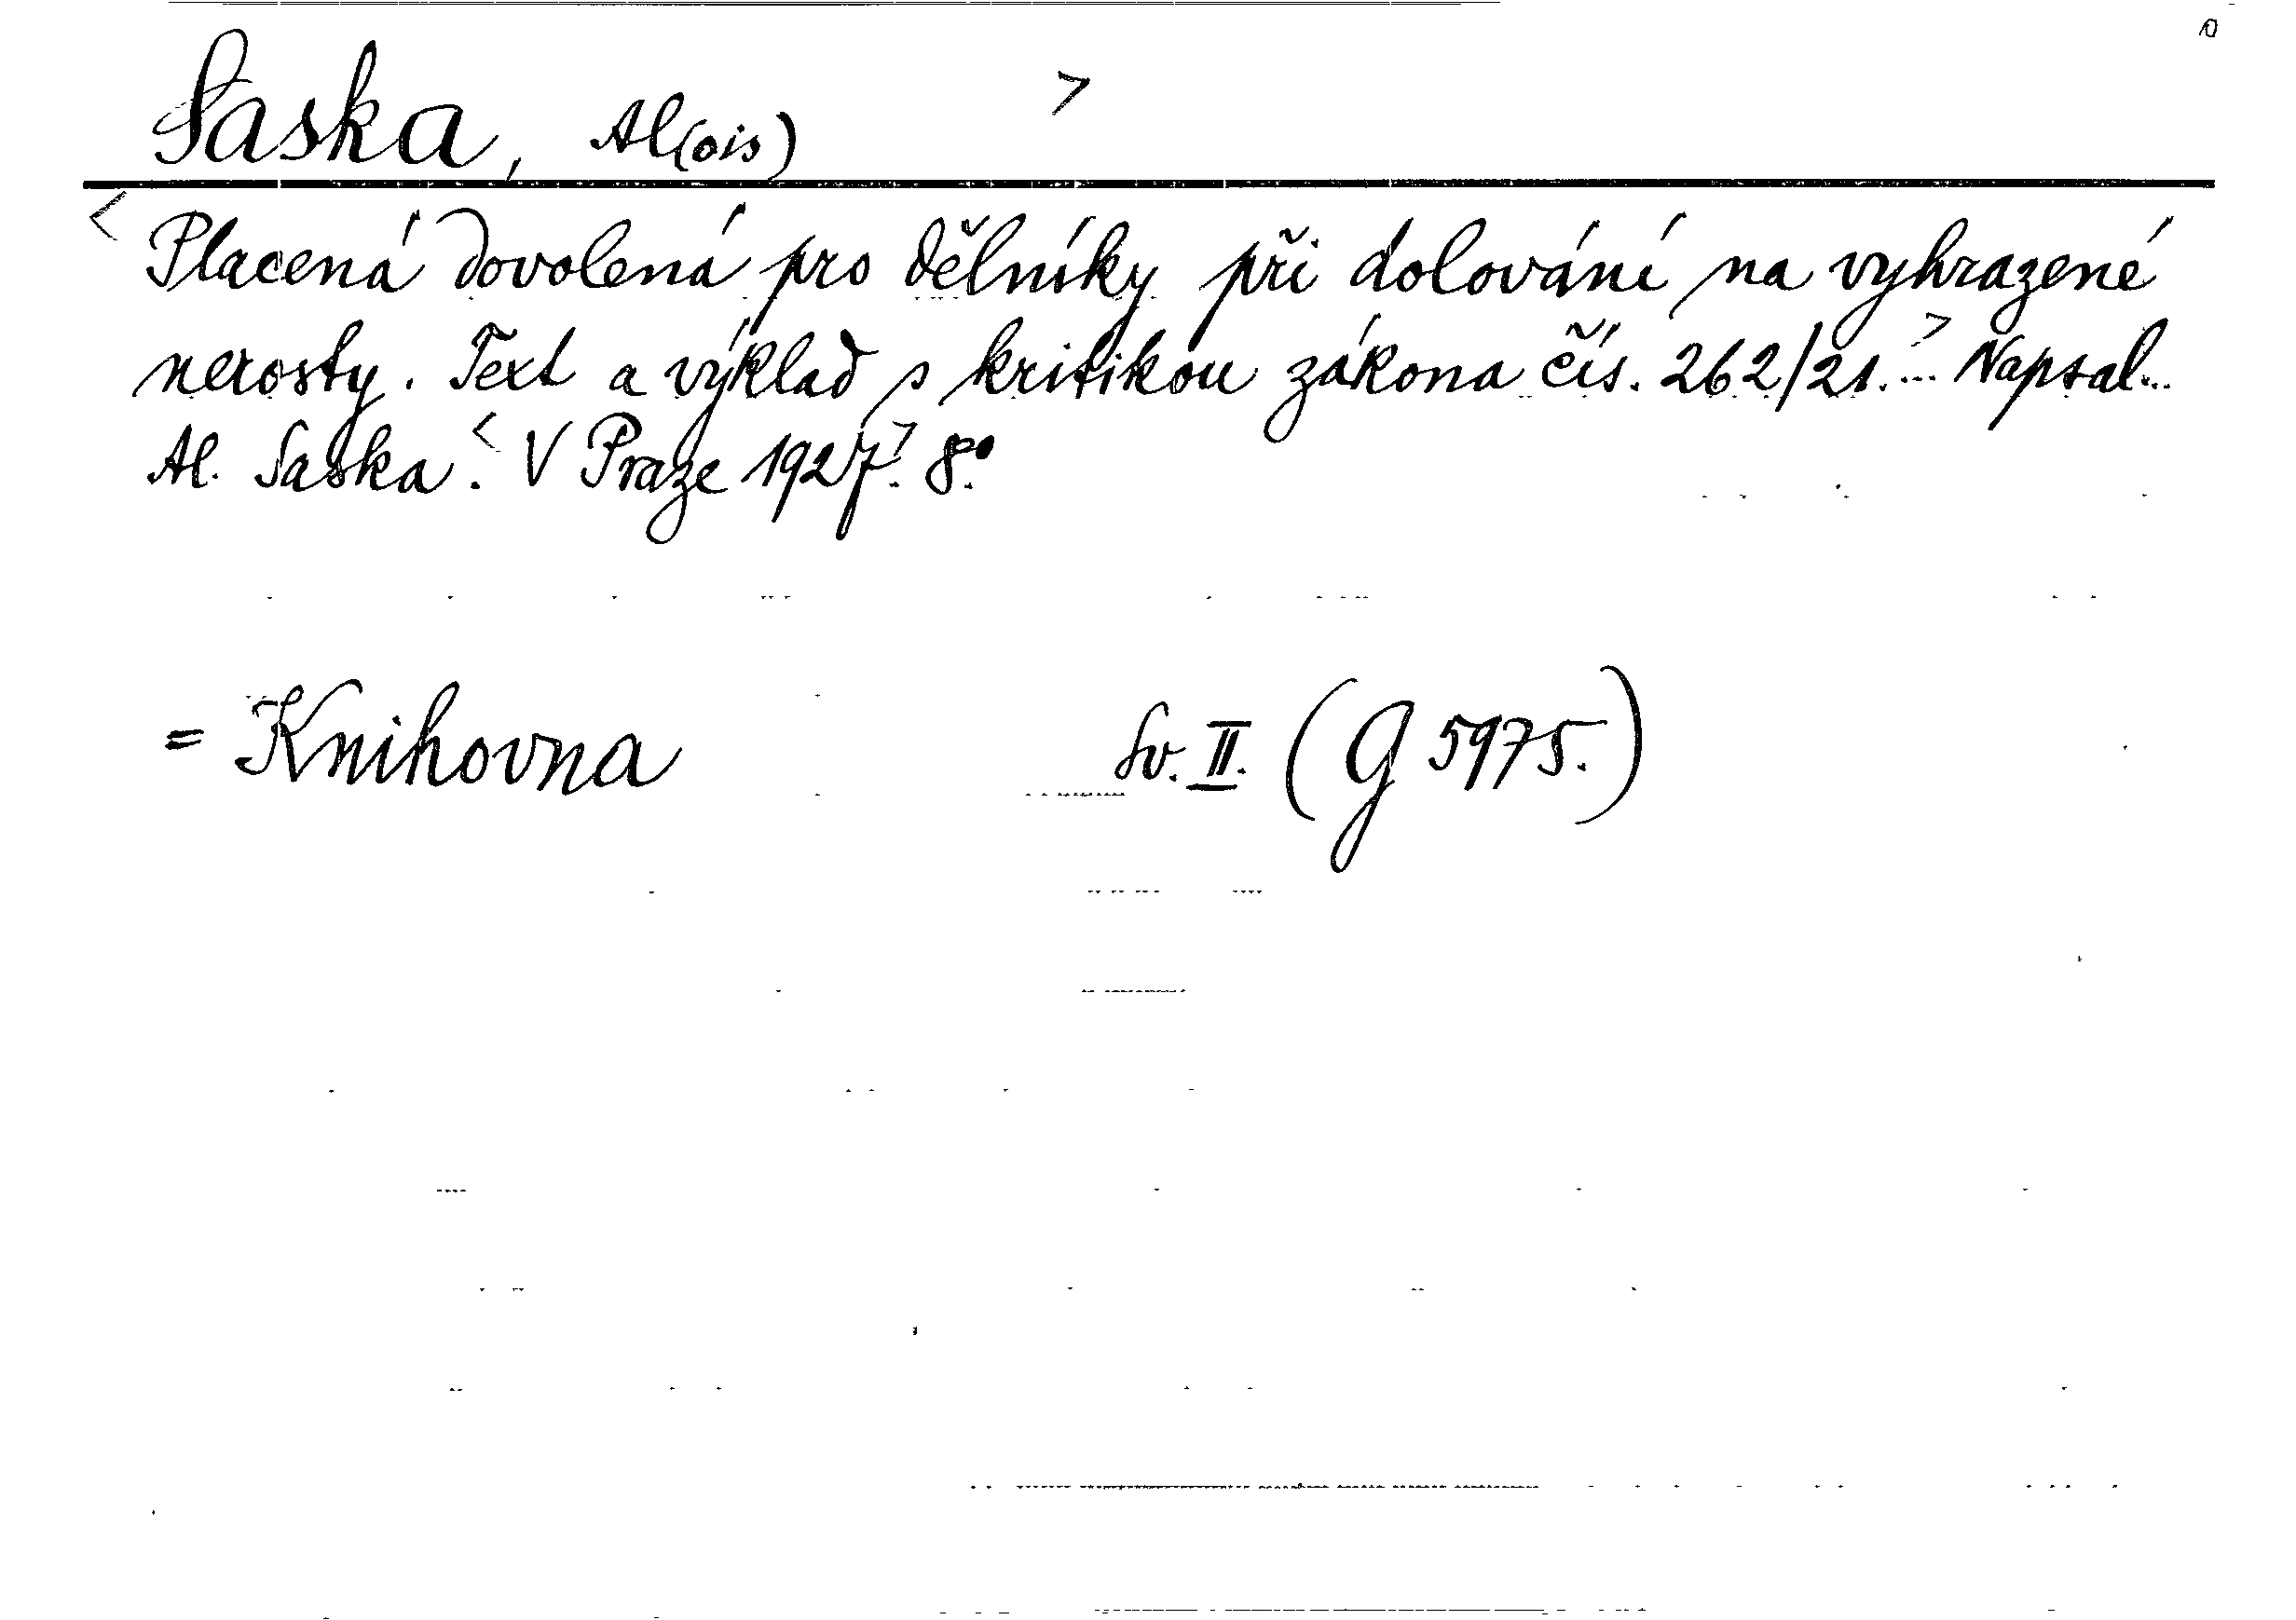 Saska, Al(ois) >
< Placená dovolená pro dělníky při dolování na vyhrazené
nerosty. Text a výklad s kritikou zákona čís. 262/21.…> Napsal…
Al. Saska.< V Praze 1927.> 8.°
= Knihovna Sv. II. (G 5975.)